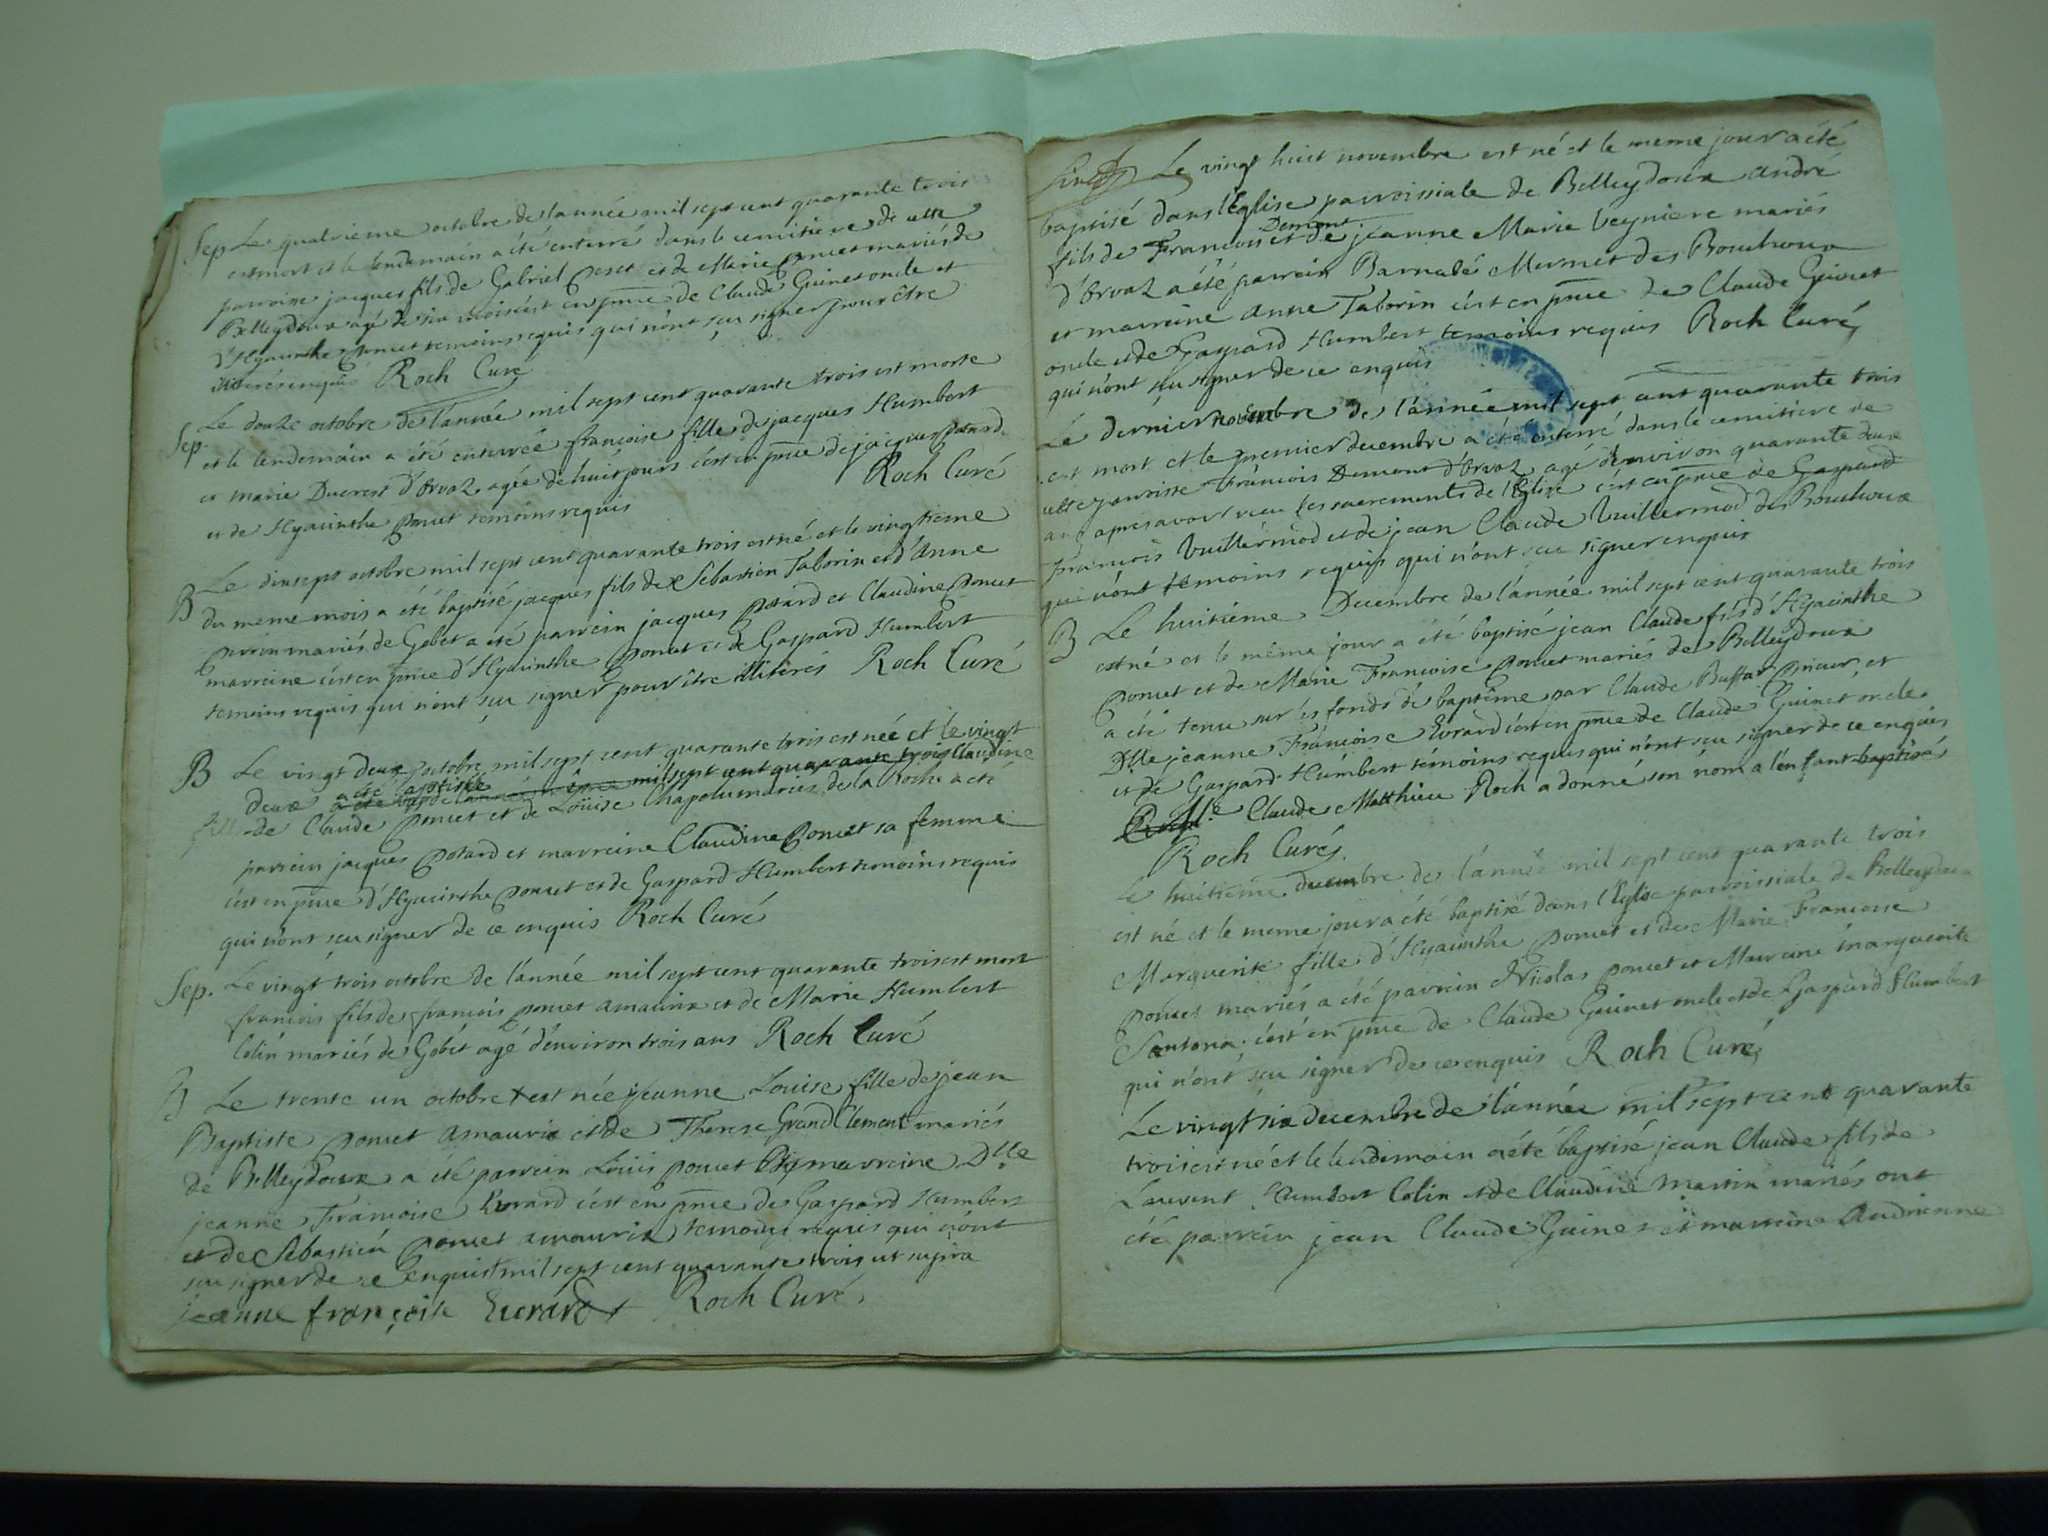 Sep. Le quatrieme octobre de l'année mil sept cent quarante trois
est mort et le lendemain a été enterré dans le cemitiere de cette
parroisse jacques fils de Gabriel Poset et de Marie Poncet mariés de
Belleydoux agé de six mois c'est en pnce de Claude Guinet oncle et
d'Hyacinthe Poncet temoins requis qui n'ont sçu signer pour être
illiterés enquis Roch Curé
Sep. Le douze octobre de l'année mil sept cent quarante trois est morte
et le lendemain a été enterrée francoise fille de jacques Humbert
et marie Ducrest d'Orvaz agée de huit jours c'est en pnce de jacques
et de Hyacinthe Poncet temoins requis Roch Curé
B Le dixsept octobre mil sept cent quarante trois est né et le vingtieme
du meme mois a été baptisé jacques fils de Sebastien Taborin et d'Anne
mariés de Gobet a été parrein jacques Potard et Claudine Poncet
marreine c'est en pnce d'Hyacinthe Poncet et de Gaspard Humbert
temoins requis qui n'ont sçu signer pour être illiterés Roch Curé
B Le vingt deux octobre mil sept cent quarante trois est née et le vingt
deux a été baptisée mil sept cent quarante trois Claudine
fille de Claude Poncet et de Loüise Chapelu mariés de la Roche a été
parrein jacques Potard et marreine Claudine Poncet sa femme
c'est en pnce d'Hyacinthe Poncet et de Gaspard Humbert temoins requis
qui n'ont sçu signer de ce enquis Roch Curé
Sep. Le vingt trois octobre de l'année mil sept cent quarante trois est mort
francois fils de francois Poncet amaurix et de Marie Humbert
Colin mariés de Gobet agé d'environ trois ans Roch Curé
B Le trente un octobre est née jeanne Louise fille de jean
Baptiste Poncet amaurix et de Therese Grand Clement mariés
de Belleydoux a été parrein Loüis Poncet marreine Dlle
jeanne Francoise Evrard c'est en pnce de Gaspard Humbert
et de Sebastien Poncet amaurix temoins requis qui n'ont
sçu signer de ce enquis mil sept cent quarante trois ut supra
jeanne françoise Evrard Roch Curé
Le vingt huit novembre est né et le meme jour a été
baptisé dans l'Eglise parroissiale de Belleydoux andré
fils de Francois Demont et de jeanne Marie Veyniere mariés
d'Orvaz a été parrein Barnabé Mermet des Bouchoux
et marreine anne Taborin c'est en pnce de Claude Guinet
oncle et de Gaspard Humbert temoins requis Roch Curé
qui n'ont sçu signer de ce enquis
Le dernier novembre de l'année mil sept cent quarante trois
est mort et le premier decembre a été enterré dans le cemitiere de
cette parroisse Francois Demont d'Orvaz agé d'environ quarante deux
ans apres avoir recu les sacrements de l'Eglise c'est en pnce de Gaspard
Francois Vuillermod et de jean Claude Vuillermod des Bouchoux
qui n'ont temoins requis qui n'ont sçu signer enquis
B Le huitieme Decembre de l'année mil sept cent quarante trois
est né et le même jour a été baptisé jean Claude fils d'Hyacinthe
Poncet et de Marie Francoise Poncet mariés de Belleydoux
a été tenu sur les fonds de baptême par Claude Buffar Prieur et
Dlle jeanne Francoise Evrard c'est en pnce de Claude Guinet oncle
et de Gaspard Humbert témoins requis qui n'ont sçu signer de ce enquis
Claude Matthieu Roch a donné son nom a l'enfant baptisé
Roch Curé
Le huitieme decembre de l'année mil sept cent quarante trois
est né et le meme jour a été baptisé dans l'Eglise parroissiale de Belleydoux
Marguerite fille d'Hyacinthe Poncet et de Marie Francoise
Poncet mariés a été parrein Nicolas Poncet et Marreine marguerite
Santona c'est en pnce de Claude Guinet oncle et de Gaspard Humbert
qui n'ont sçu signer de ce enquis Roch Curé
Le vingt six decembre de l'année mil sept cent quarante
trois est né et le lendemain a été baptisé jean Claude fils de
Laurent humbert Colin et de Claudine Martin mariés ont
été parrein jean Claude Guinet et marreine Audrienne